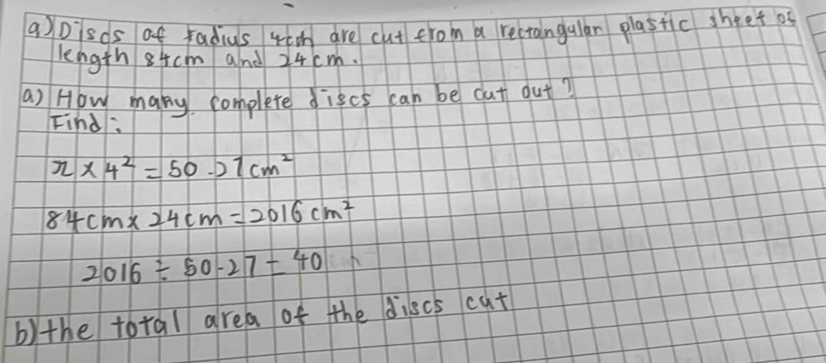 a) Discs of radius 4cm are cut from a rectangular plastic sheet of
length 84cm and 24cm.
a) How many complete discs can be cut out?
Find:
π × 4² = 50.27cm²
84cm × 24cm = 2016cm²
2016 ÷ 50.27 = 40
b) the total area of the discs cut